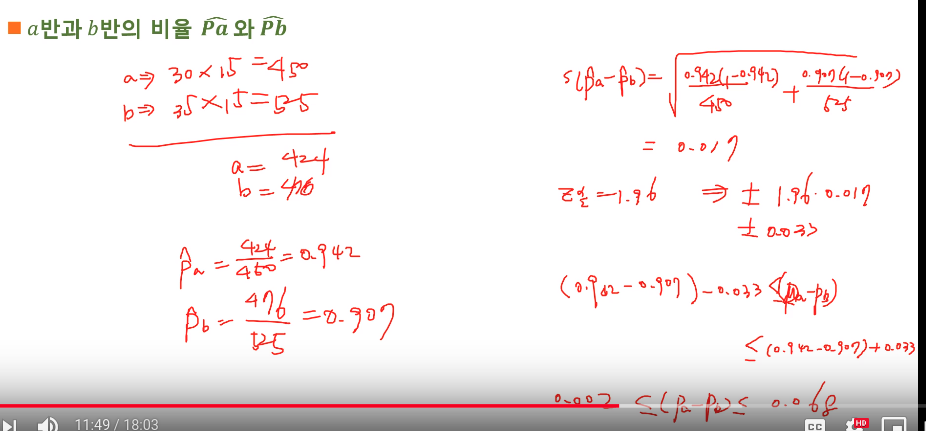 ■ a반과 b반의 비율 P̂a 와 P̂b
a ⇒ 30×15 = 450
b ⇒ 35×15 = 525
a = 424
b = 476
p̂a = 424/450 = 0.942
p̂b = 476/525 = 0.907
s(p̂a-p̂b) = √(0.942(1-0.942)/450 + 0.907(1-0.907)/525)
= 0.017
Zα/2 = 1.96 ⇒ ± 1.96·0.017
± 0.033
(0.942-0.907)-0.033 ≤ (pa-pb)
≤ (0.942-0.907)+0.033
0.002 ≤ (pa-pb) ≤ 0.068
11:49 / 18:03
CC HD